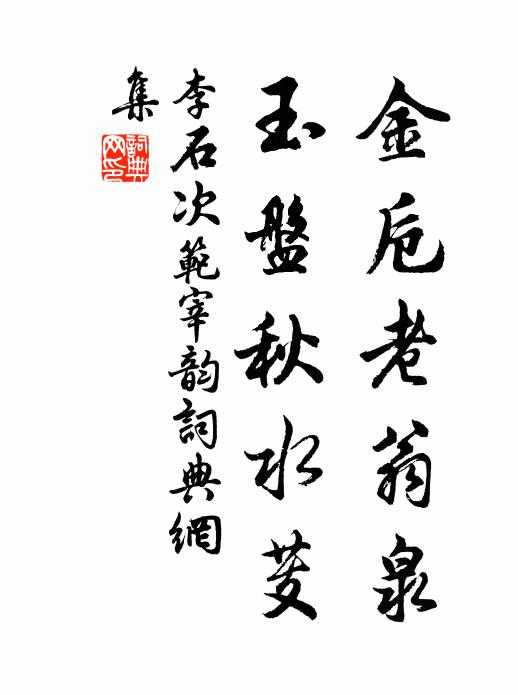 金卮老翁泉
玉盤秋水芡
李石次範宰韵詞典網
集
詞典
网印